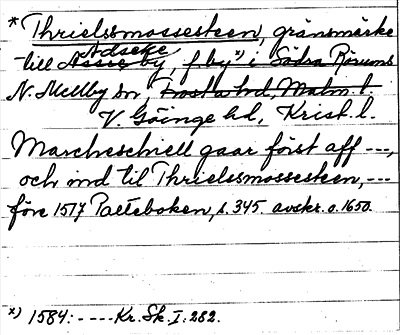 * Thrielssmossesteen, gränsmärke
Adseke
till Asseby, f. by*) i Södra Rörums
N. Mellby sn, Frosta hd, Malm. l.
V. Göinge hd, Krist. l.
Marcheschiell gaar först aff ---,
och ind til Thrielssmossesteen, ---
före 1517 Palteboken, s. 345. avskr. o. 1650.
*) 1584: ---- Kr. Sk. I: 282.